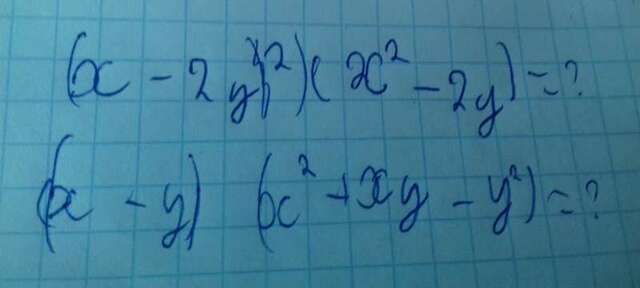 (x - 2y²)(x² - 2y) = ?
(x - y) (x² + xy - y²) = ?